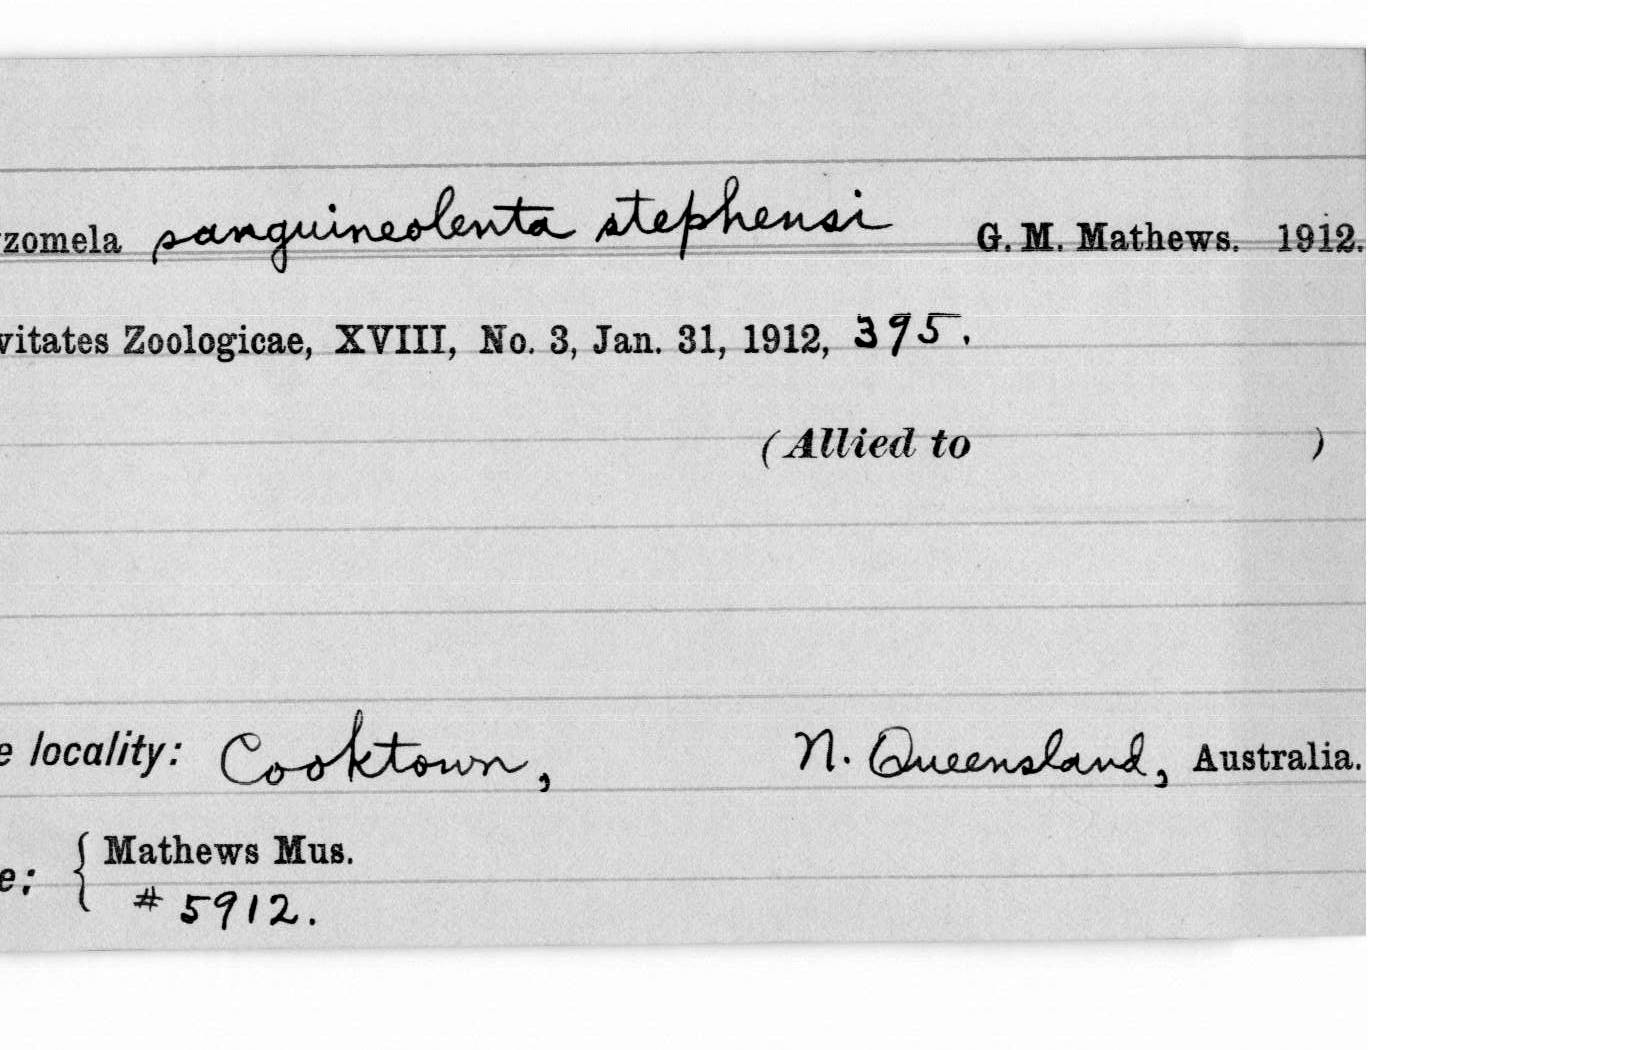 zomela sanguineolenta stephensi G. M. Mathews. 1912.
vitates Zoologicae, XVIII, No. 3, Jan. 31, 1912, 395.
(Allied to )
e locality: Cooktown, N. Queensland, Australia.
e: { Mathews Mus.
# 5912.